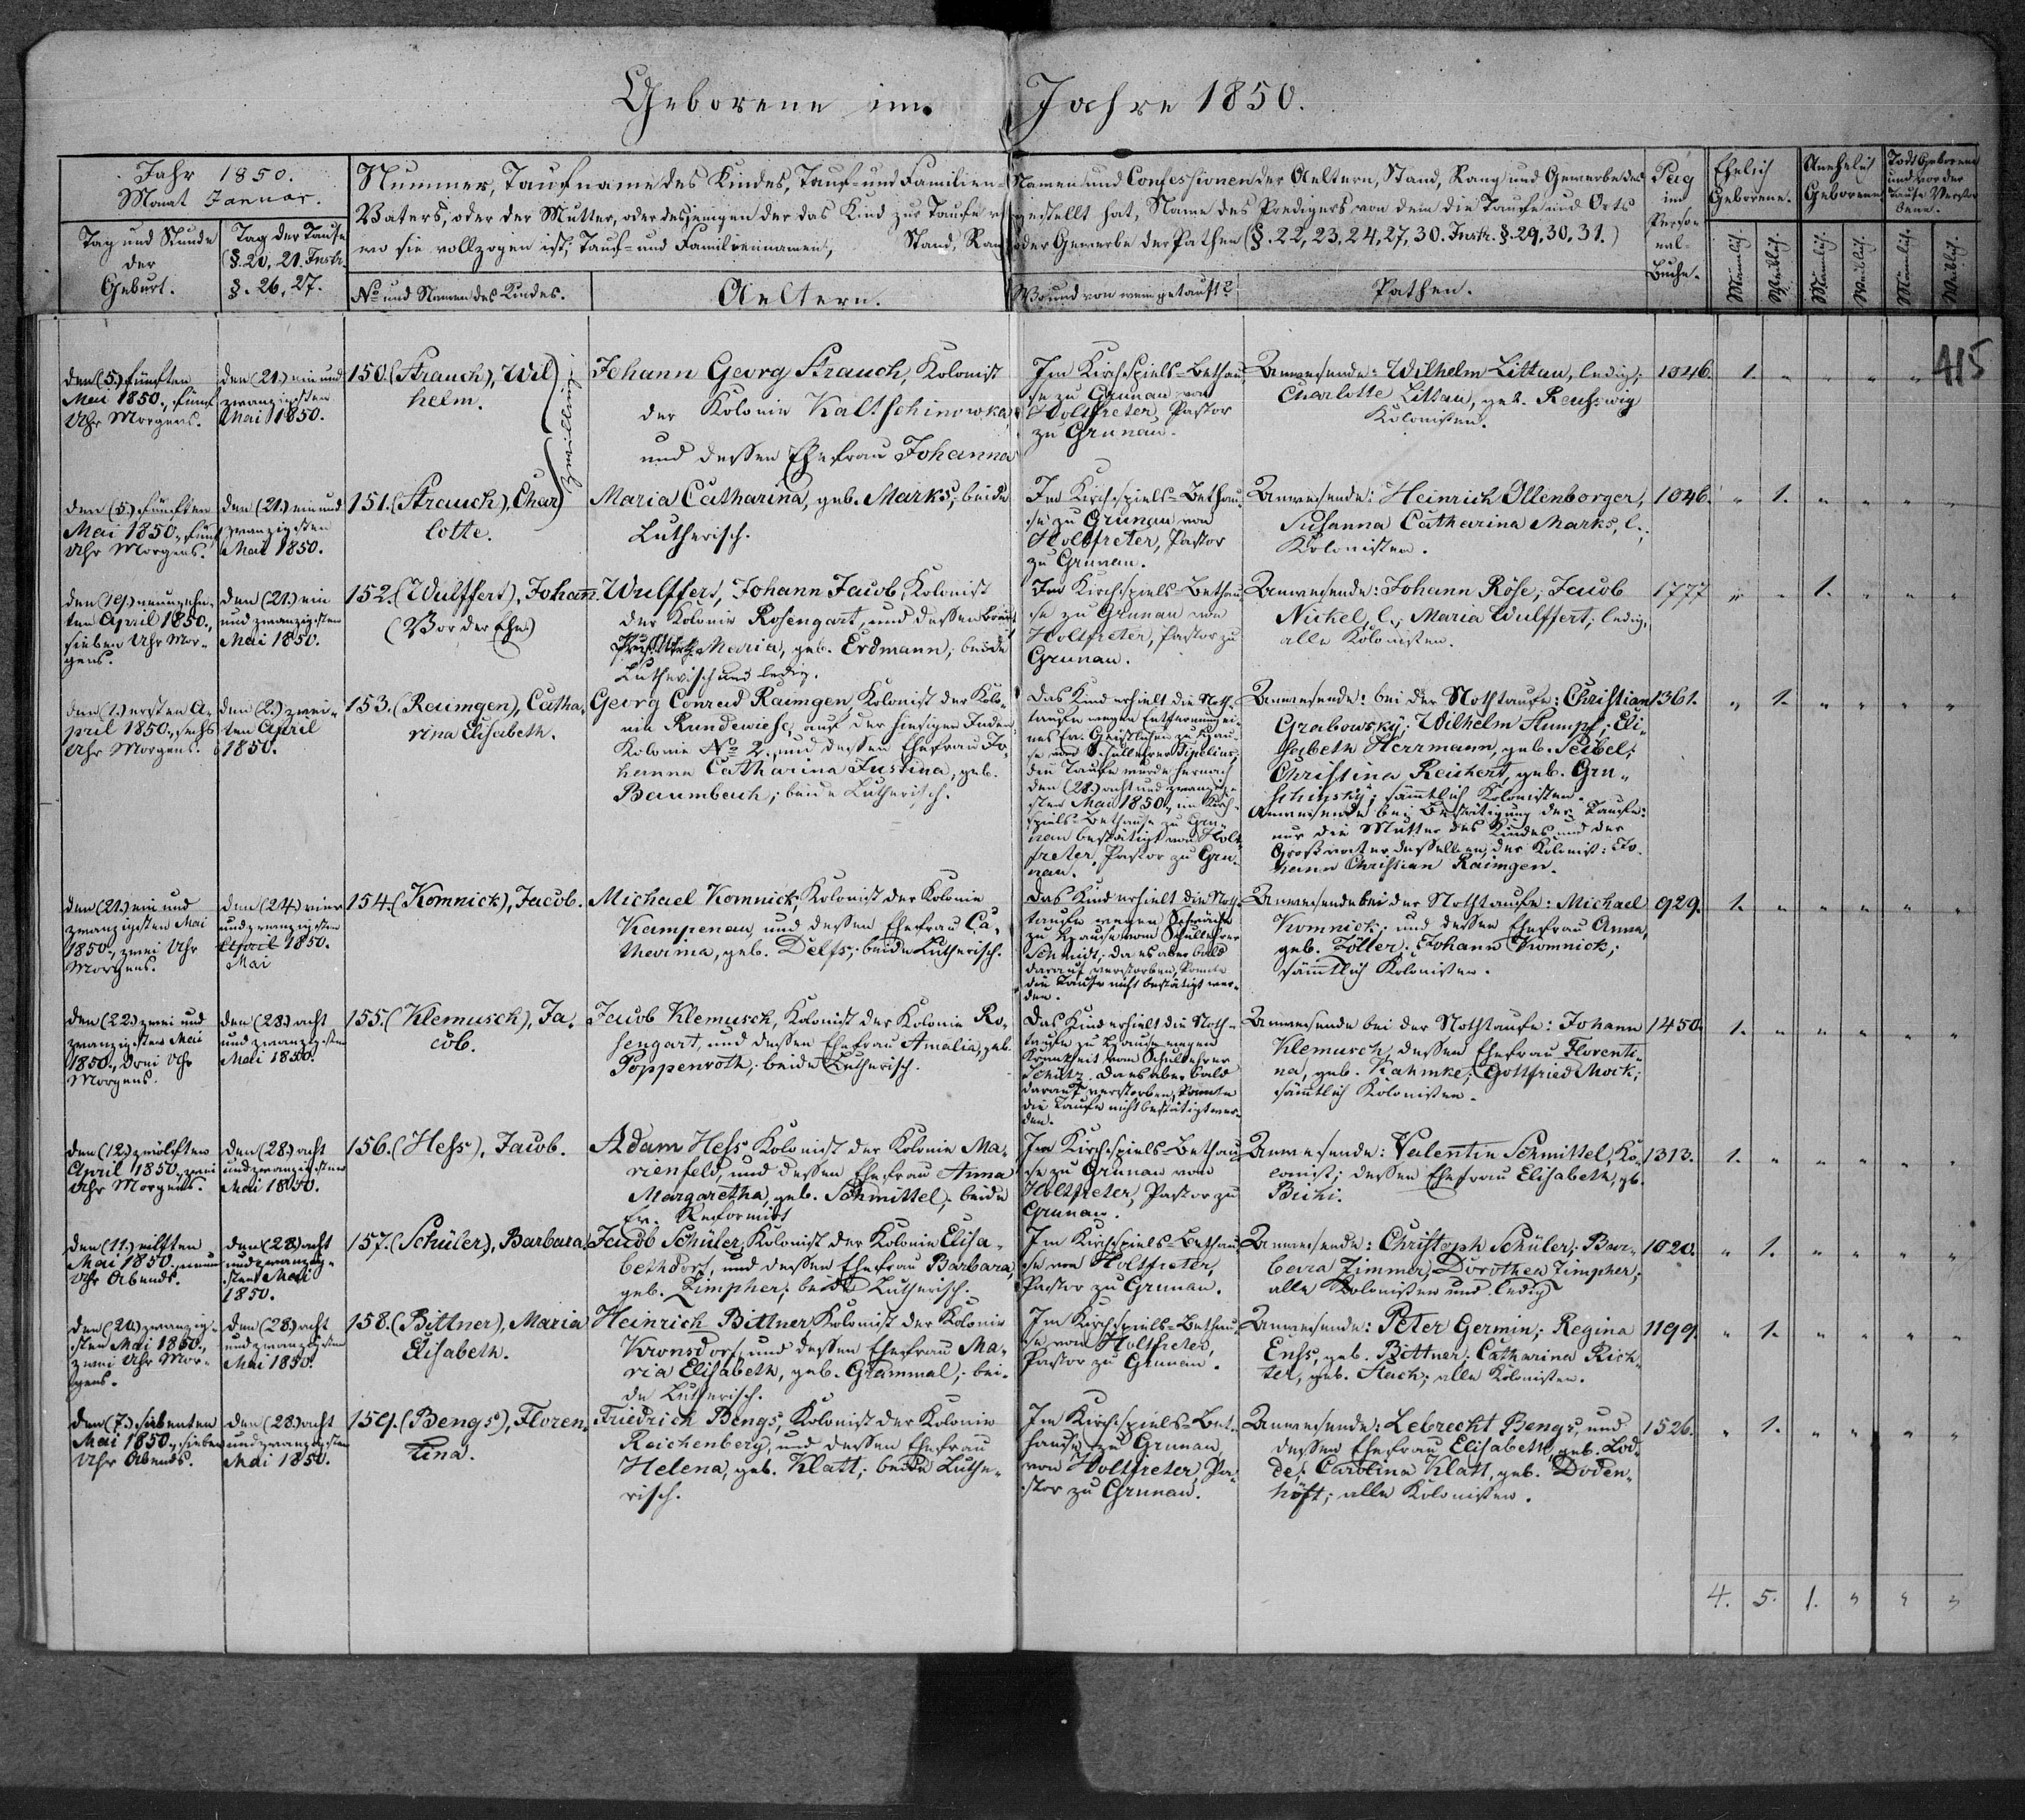 Geborene im Jahre 1850.
Jahr 1850.
Monat Januar.
Tag und Stunde
der
Geburt.
Tag der Taufe
(§. 20, 21. Instr.
§. 26, 27.
Nummer, Taufname des Kindes, Tauf- und Familien-Namen und Confessionen der Aeltern, Stand, Rang und Gewerbe des
Vaters, oder der Mutter, oder desjenigen der das Kind zur Taufe gestellt hat, Name des Predigers von dem die Taufe und Orts
wo sie vollzogen ist, Tauf- und Familiennamen, Stand, Rang oder Gewerbe der Pathen (§. 22, 23, 24, 27, 30. Instr. §. 29, 30, 31.)
No und Namen des Kindes.
Aeltern.
Wo und von wem getauft?
Pathen.
Pag
im
Perso-
nal-
Buche.
Ehelich
Geborene.
Unehelich
Geborene
Todt Geborene
und vor der
Taufe Verstor
bene.
Männlich.
Weiblich.
Männlich.
Weiblich.
Männlich.
Weiblich.
415
den (5.) fünften
Mai 1850., fünf
Uhr Morgens.
den (21.) ein und
zwanzigsten
Mai 1850.
150. (Strauch), Wil
helm.
Zwillinge
Johann Georg Strauch, Kolonist
der Kolonie Kaltschinowka,
und dessen Ehefrau Johanna
Im Kirchspiels-Bethau
se zu Grunau von
Holtfreter, Pastor
zu Grunau.
Anwesende: Wilhelm Littau, ledig;
Charlotte Littau, geb.
Kolonisten.
1046. 1. " " " "
den (5.) fünften
Mai 1850., fünf
Uhr Morgens.
den (21.) ein und
zwanzigsten
Mai 1850.
151. (Strauch), Char
lotte.
Maria Catharina, geb. Marks; beide
Lutherisch.
Im Kirchspiels-Bethau
se zu Grunau von
Holtfreter, Pastor
zu Grunau.
Anwesende: Heinrich Ollenborger,
Susanna Catharina Marks, l.;
Kolonisten.
1046. " 1. " " " "
den (19.) neunzehn-
ten April 1850.,
sieben Uhr Mor-
gens.
den (21.) ein
und zwanzigsten
Mai 1850.
152. (Wulffert), Johann.
(Vor der Ehe)
Wulffert, Johann Jacob, Kolonist
der Kolonie Rosengart, und dessen Braut
Maria, geb. Erdmann; beide
Lutherisch und ledig.
Im Kirchspiels-Bethau
se zu Grunau von
Holtfreter, Pastor zu
Grunau.
Anwesende: Johann Röse, Jacob
Nickel, l., Maria Wulffert; ledig,
alle Kolonisten.
1777 " " 1. " " "
den (1.) ersten A-
pril 1850., sechs
Uhr Morgens.
den (2.) zwei-
ten April
1850.
153. (Raimgen), Catha-
rina Elisabeth.
Georg Conrad Raimgen, Kolonist der Kolo-
nie Rundewiese, auf der hiesigen Juden
Kolonie No 2., und dessen Ehefrau Jo-
hanna Catharina Justina, geb.
Baumbach; beide Lutherisch.
Das Kind erhielt die Noth-
taufe wegen Entfernung ei-
nes Ev. Geistlichen zu Hau-
se vom Schullehrer Sipelius,
die Taufe wurde hernach
den (28.) acht und zwanzig-
sten Mai 1850., im Kirch-
spiels-Bethause zu Gru-
nau bestätigt von Holt-
freter, Pastor zu Gru-
nau.
Anwesende: bei der Nothtaufe: Christian
Grabowsky; Wilhelm Stumpf; Eli-
sabeth Herrmann, geb. Seibel;
Christina Reichert, geb. Gru-
schinsky; sämmtlich Kolonisten.
Anwesende bei Bestätigung der Taufe:
nur die Mutter des Kindes und der
Großvater desselben, der Kolonist: Jo-
hann Christian Raimgen.
1361. " 1. " " " "
den (21.) ein und
zwanzigsten Mai
1850., zwei Uhr
Morgens.
den (24.) vier
und zwanzigsten
April 1850.
Mai
154. (Komnick), Jacob.
Michael Komnick, Kolonist der Kolonie
Kampenau, und dessen Ehefrau Ca-
tharina, geb. Delfs; beide Lutherisch.
Das Kind erhielt die Noth-
taufe wegen Schwäche
zu Hause vom Schullehrer
Schmidt; da es aber bald
darauf verstorben, konnte
die Taufe nicht bestätigt wer-
den.
Anwesende bei der Nothtaufe: Michael
Komnick; und dessen Ehefrau Anna,
geb. Föller; Johann Komnick;
sämmtlich Kolonisten.
929. 1. " " " " "
den (22.) zwei und
zwanzigsten Mai
1850., drei Uhr
Morgens.
den (28.) acht
und zwanzigsten
Mai 1850.
155. (Klemusch), Ja-
cob.
Jacob Klemusch, Kolonist der Kolonie Ro-
sengart, und dessen Ehefrau Amalia, geb.
Poppenroth; beide Lutherisch.
Das Kind erhielt die Noth-
taufe zu Hause wegen
Krankheit vom Schullehrer
Schütz. Da es aber bald
darauf verstorben, konnte
die Taufe nicht bestätigt wer-
den.
Anwesende bei der Nothtaufe: Johann
Klemusch, dessen Ehefrau Florenti-
na, geb. Kahmke; Gottfried Mock;
sämtlich Kolonisten.
1450. 1. " " " " "
den (12.) zwölften
April 1850., zwei
Uhr Morgens.
den (28.) acht
und zwanzigsten
Mai 1850.
156. (Hess), Jacob.
Adam Hess, Kolonist der Kolonie Ma-
rienfeld, und dessen Ehefrau Anna
Margaretha, geb. Schmittel; beide
Ev. Reformirt
Im Kirchspiels-Bethau-
se zu Grunau von
Holtfreter, Pastor zu
Grunau.
Anwesende: Valentin Schmittel, Ko-
lonist; dessen Ehefrau Elisabeth, gb.
Bihi.
1313. 1. " " " " "
den (11.) eilften
Mai 1850., neun
Uhr Abends.
den (28.) acht
und zwanzig-
sten Mai
1850.
157. (Schüler), Barbara.
Jacob Schüler, Kolonist der Kolonie Elisa-
bethdorf, und dessen Ehefrau Barbara,
geb. Zimpher; beide Lutherisch.
Im Kirchspiels-Bethau-
se von Holtfreter,
Pastor zu Grunau.
Anwesende: Christoph Schüler; Bar-
bara Zimmer, Dorothea Zimpher;
alle Kolonisten und ledig
1020. " 1. " " " "
den (20.) zwanzig-
sten Mai 1850.,
zwei Uhr Mor-
gens.
den (28.) acht
und zwanzigsten
Mai 1850.
158. (Bittner), Maria
Elisabeth.
Heinrich Bittner, Kolonist der Kolonie
Kronsdorf, und dessen Ehefrau Ma-
ria Elisabeth, geb. Grammal; bei-
de Lutherisch.
Im Kirchspiels-Bethau-
se von Holtfreter,
Pastor zu Grunau.
Anwesende: Peter Germin; Regina
Enss, geb. Bittner; Catharina Rich-
ter, geb. Stach; alle Kolonisten.
1199. " 1. " " " "
den (7.) siebenten
Mai 1850., sieben
Uhr Abends.
den (28.) acht
und zwanzigsten
Mai 1850.
159. (Bengs), Floren-
tina.
Friedrich Bengs, Kolonist der Kolonie
Reichenberg, und dessen Ehefrau
Helena, geb. Klatt; beide Luthe-
risch.
Im Kirchspiels-Bet-
hause zu Grunau
von Holtfreter, Pa-
stor zu Grunau.
Anwesende: Lebrecht Bengs, und
dessen Ehefrau Elisabeth, geb. Lod-
de; Carolina Klatt, geb. Doden-
höft; alle Kolonisten.
1526. " 1. " " " "
4. 5. 1. " " "